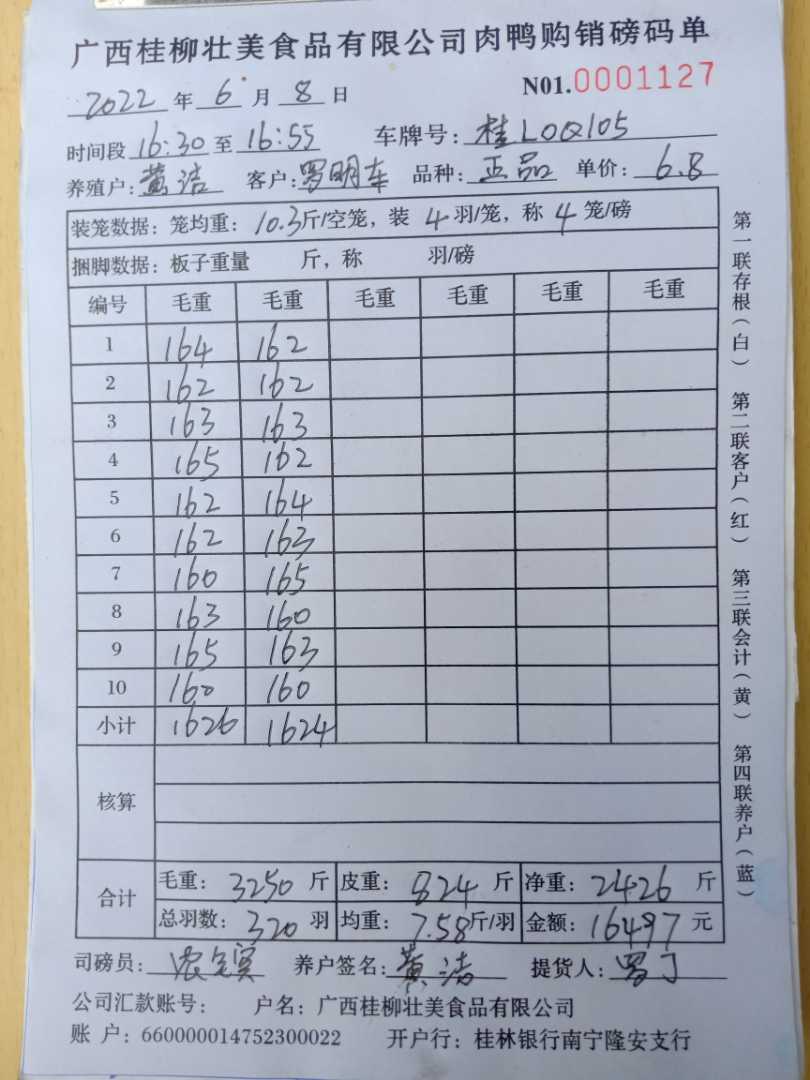 广西桂柳壮美食品有限公司肉鸭购销磅码单
2022 年 6 月 8 日 N01.0001127
时间段 16:30 至 16:55 车牌号: 桂L0Q105
养殖户: 黄洁 客户: 罗明车 品种: 正品 单价: 6.8
装笼数据: 笼均重: 10.3斤/空笼, 装 4 羽/笼, 称 4 笼/磅
捆脚数据: 板子重量 斤, 称 羽/磅
编号 毛重 毛重 毛重 毛重 毛重 毛重
1 164 162
2 162 162
3 163 163
4 165 162
5 162 164
6 162 163
7 160 165
8 163 160
9 165 163
10 160 160
小计 1626 1624
核算
合计 毛重: 3250 斤 皮重: 824 斤 净重: 2426 斤
总羽数: 320 羽 均重: 7.58斤/羽 金额: 16497 元
司磅员: 养户签名: 黄洁 提货人: 罗丁
公司汇款账号: 户名: 广西桂柳壮美食品有限公司
账 户: 660000014752300022 开户行: 桂林银行南宁隆安支行
第一联存根(白) 第二联客户(红) 第三联会计(黄) 第四联养户(蓝)